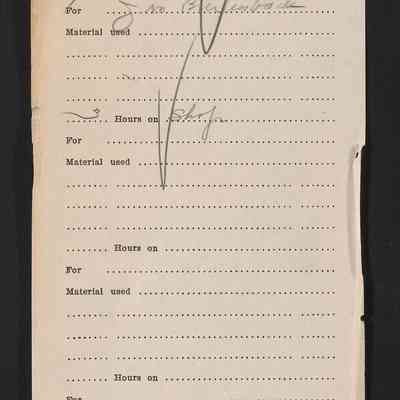 For
Material used
Hours on Shop
For
Material used
Hours on
For
Material used
Hours on
For